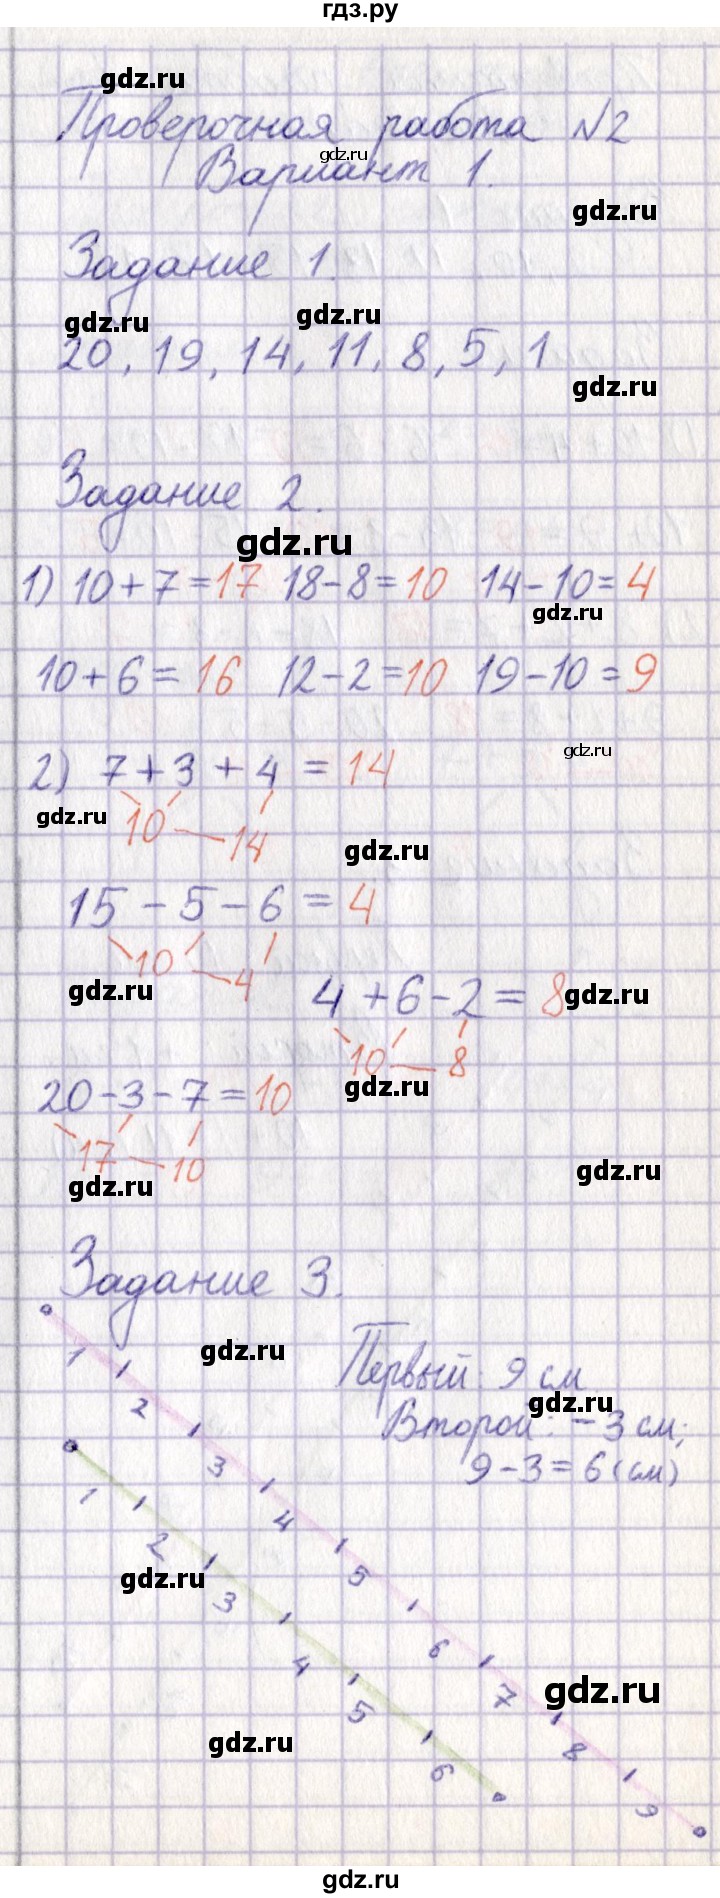 гдз.ру
gdz.ru
Проверочная работа №2
gdz.ru
Вариант 1.
gdz.ru
Задание 1.
gdz.ru gdz.ru
20, 19, 14, 11, 8, 5, 1
gdz.ru
Задание 2.
gdz.ru
1) 10+7=17 18-8=10 14-10=4
gdz.ru
10+6=16 12-2=10 19-10=9
gdz.ru
2) 7+3+4=14
gdz.ru
10 14
gdz.ru
15-5-6=4
10 4
gdz.ru
4+6-2=8
gdz.ru
10 8
gdz.ru
20-3-7=10
17 10
gdz.ru
gdz.ru
Задание 3.
gdz.ru
Первый: 9 см
gdz.ru
Второй: -3 см;
9-3=6 (см)
1 2 3 4 5 6 7 8 9
1 2 3 4 5 6
gdz.ru
gdz.ru
gdz.ru
gdz.ru